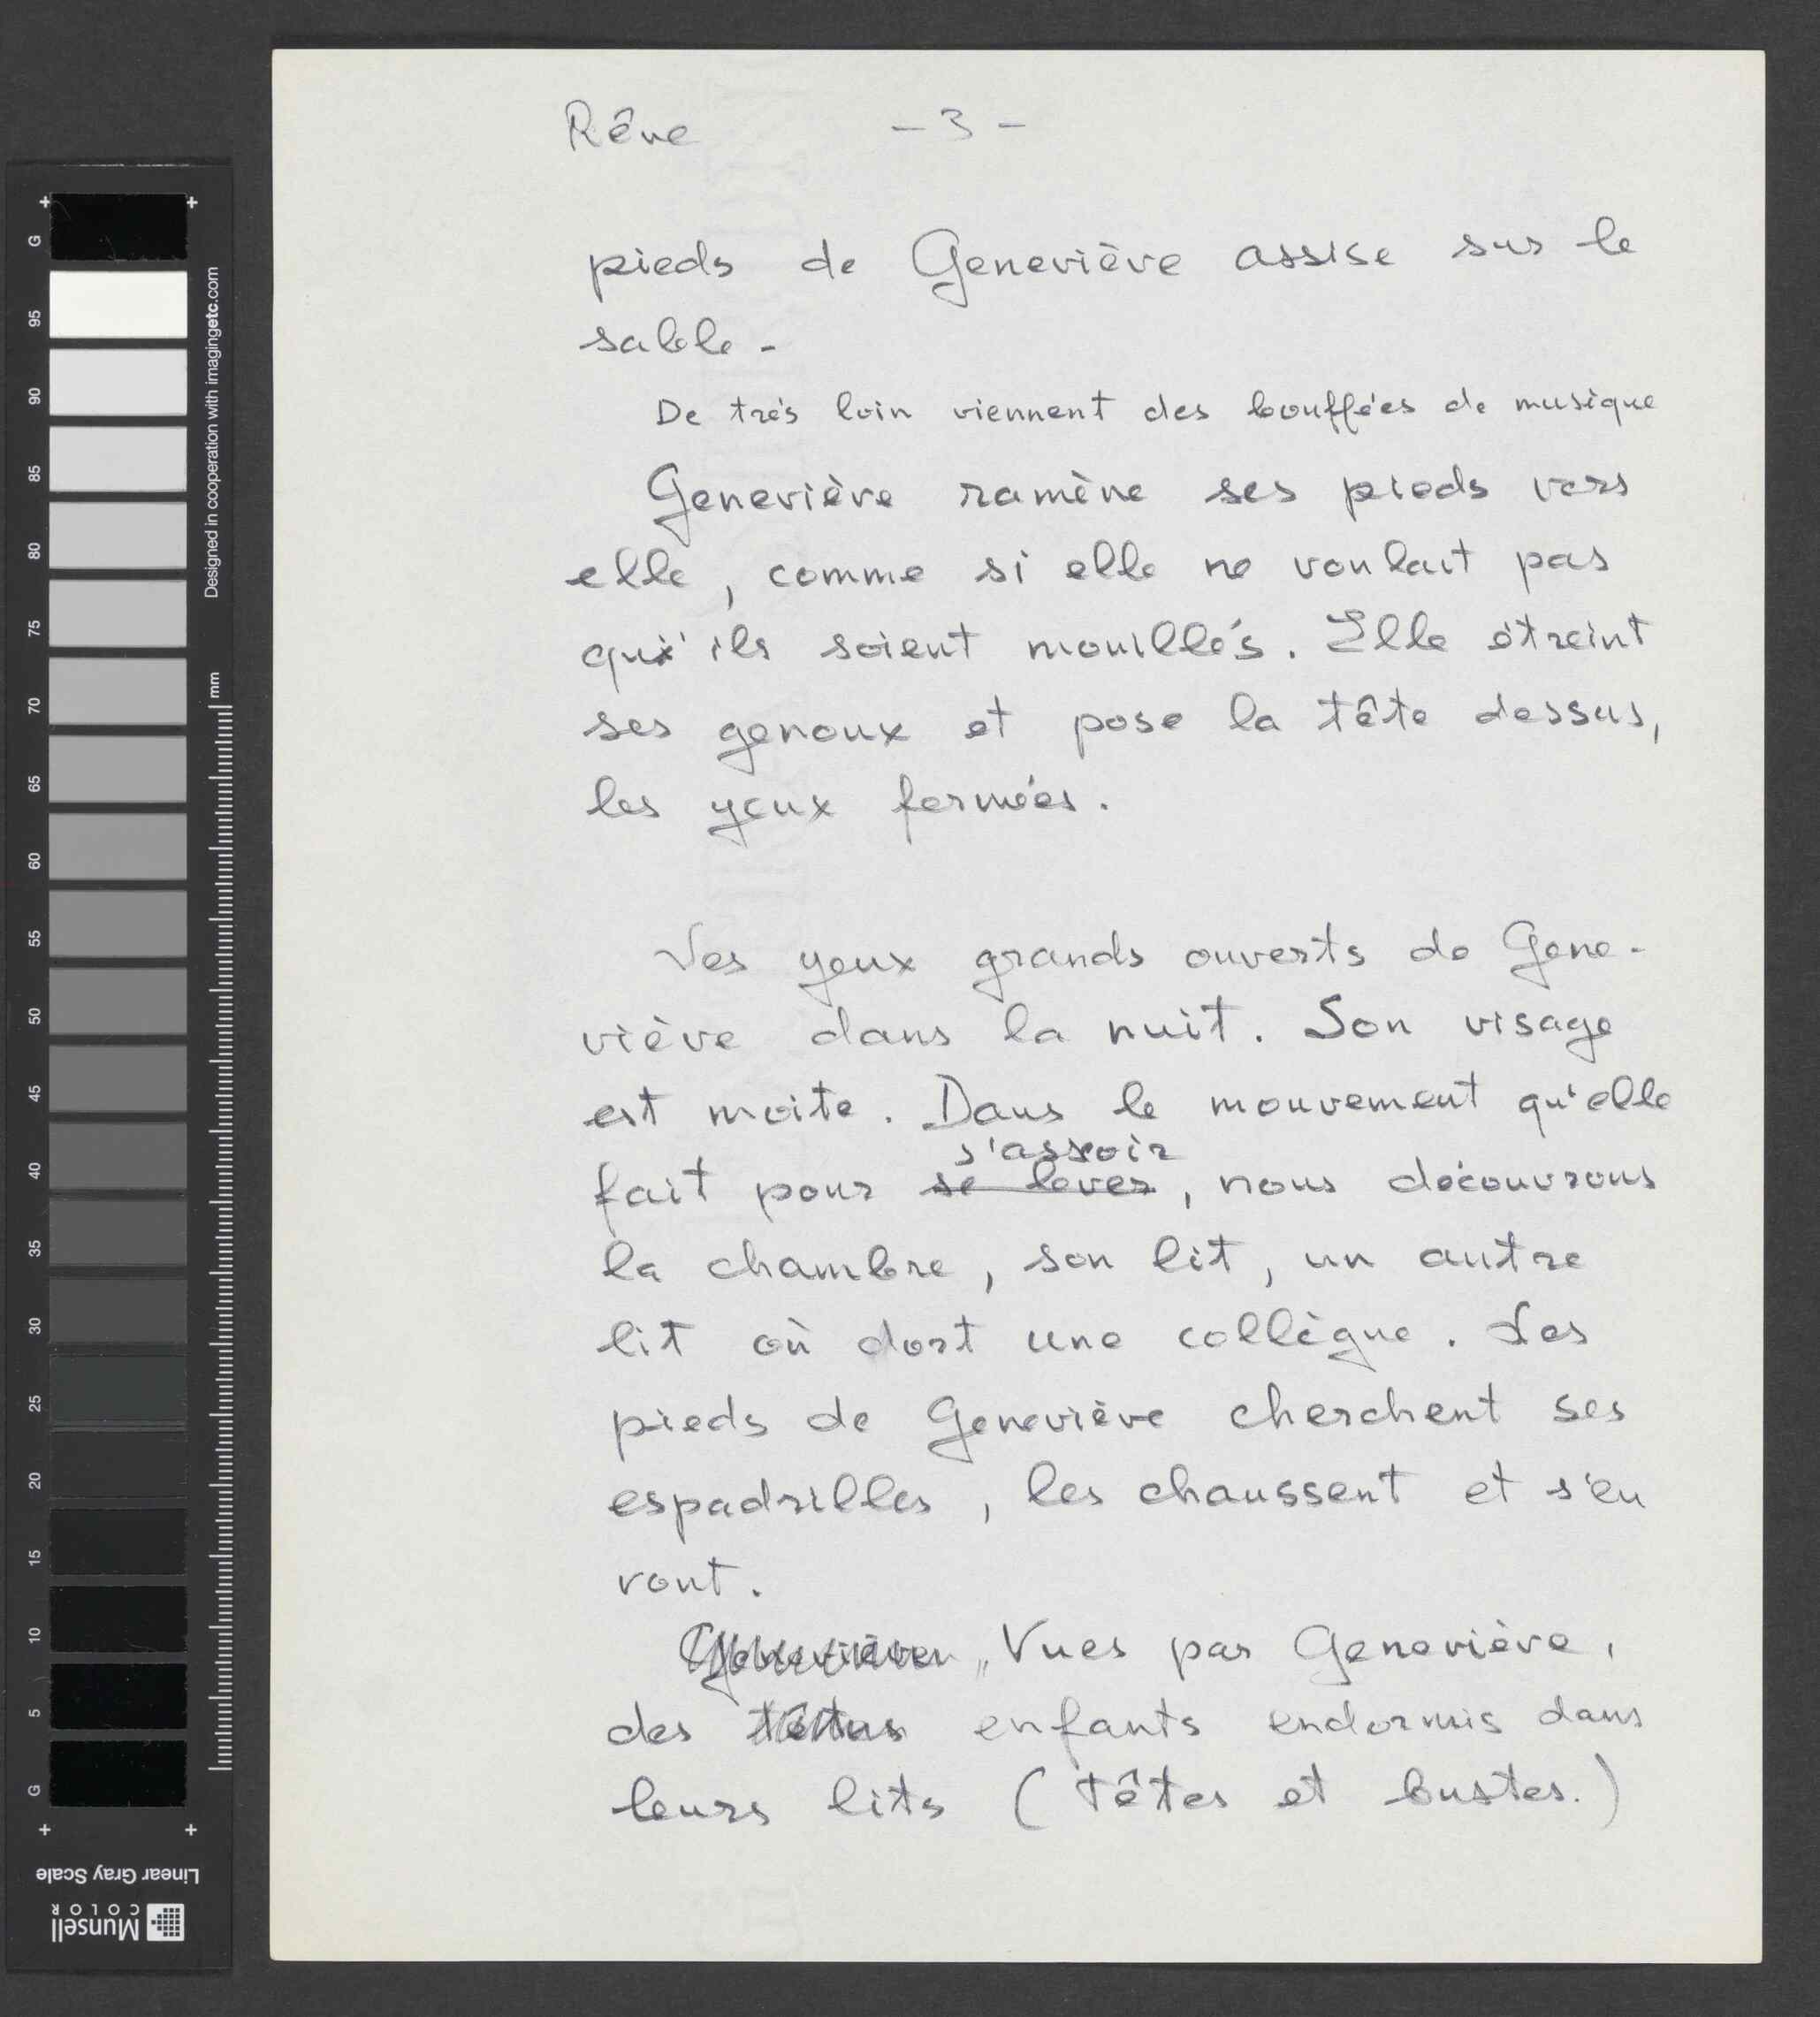 Rêve - 3 -
pieds de Geneviève assise sur le
sable -
De très loin viennent des bouffées de musique
Geneviève ramène ses pieds vers
elle, comme si elle ne voulait pas
qu'ils soient mouillés. Elle étreint
ses genoux et pose la tête dessus,
les yeux fermés.
Les yeux grands ouverts de Gene-
viève dans la nuit. Son visage
est moite. Dans le mouvement qu'elle
s'assoir
fait pour se lever, nous découvrons
la chambre, son lit, un autre
lit où dort une collègue. Les
pieds de Geneviève cherchent ses
espadrilles, les chaussent et s'en
vont.
Vues par Geneviève,
des têtes enfants endormis dans
leurs lits (têtes et bustes.)
G
95
90
85
80
75
70
65
60
55
50
45
40
35
30
25
20
15
10
5
G
Designed in cooperation with imagingetc.com
mm
Linear Gray Scale
Munsell
COLOR